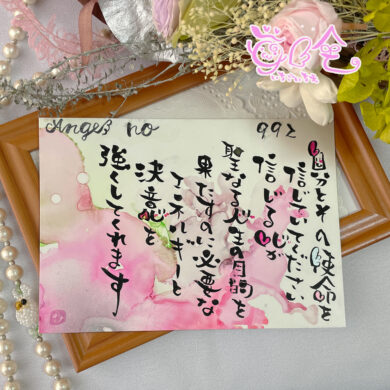 Angel no 992
自分とその使命を
信じていてください
信じる心が
聖なる人生の目的を
果たすのに必要な
エネルギーと
決意を
強くしてくれます